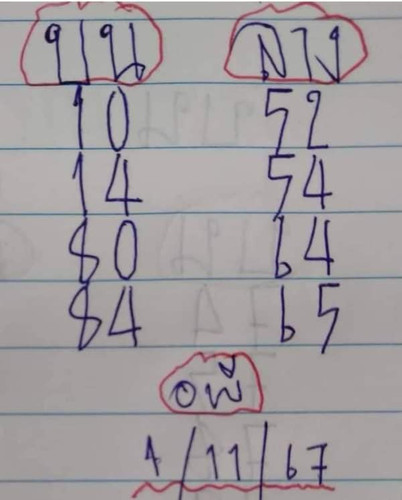 ลาง
10 52
14 54
80 64
84 65
อพี
1/11/67